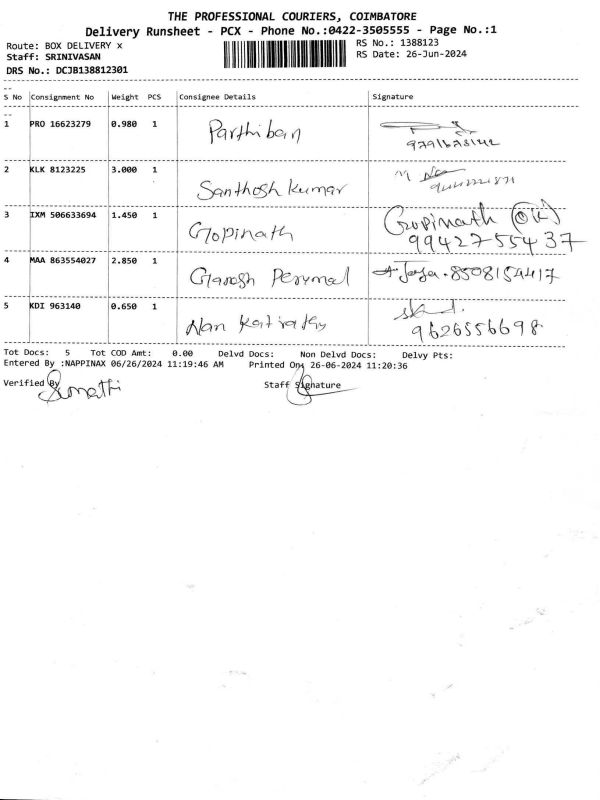 THE PROFESSIONAL COURIERS, COIMBATORE
Delivery Runsheet - PCX - Phone No.:0422-3505555 - Page No.:1
Route: BOX DELIVERY x
RS No.: 1388123
Staff: SRINIVASAN
RS Date: 26-Jun-2024
DRS No.: DCJB138812301
S No Consignment No Weight PCS Consignee Details Signature
1 PRO 16623279 0.980 1 Parthiban
2 KLK 8123225 3.000 1 Santhosh Kumar
3 IXM 506633694 1.450 1 Gopinath Gopinath
9942755437
4 MAA 863554027 2.850 1 Perumal Jaya. 8508154417
5 KDI 963140 0.650 1 Nan
9626556698
Tot Docs: 5 Tot COD Amt: 0.00 Delvd Docs: Non Delvd Docs: Delvy Pts:
Entered By :NAPPINAX 06/26/2024 11:19:46 AM Printed On: 26-06-2024 11:20:36
Verified By Staff Signature